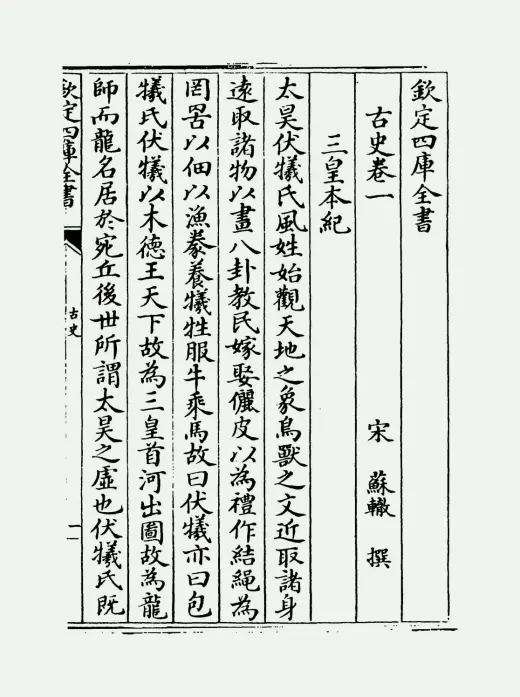 欽定四庫全書
古史卷一 宋 蘇轍 撰
三皇本紀
太昊伏犧氏風姓始觀天地之象鳥獸之文近取諸身
遠取諸物以畫八卦教民嫁娶儷皮以為禮作結繩為
罔罟以佃以漁豢養犧牲服牛乘馬故曰伏犧亦曰包
犧氏伏犧以木德王天下故為三皇首河出圖故為龍
師而龍名居於宛丘後世所謂太昊之虛也伏犧氏既
欽定四庫全書
古史
一